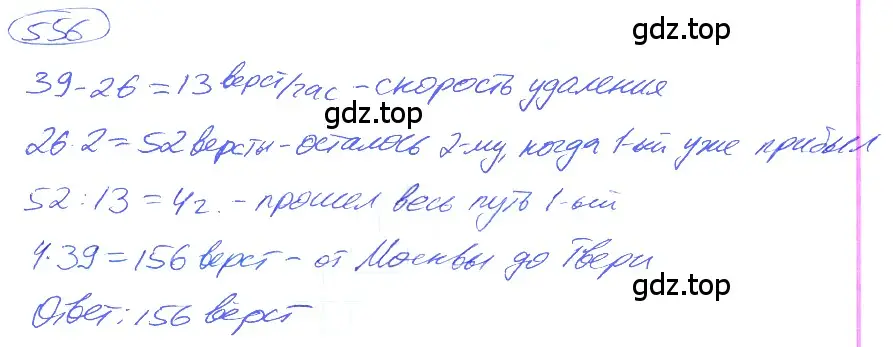 556
gdz.top
39-26=13 верст/час - скорость удаления
gdz.top
26·2=52 версты - осталось 2-му, когда 1-ый уже прибыл
52:13=4 г. - прошел весь путь 1-ый
4·39=156 верст - от Москвы до Твери
gdz.top
Ответ: 156 вёрст